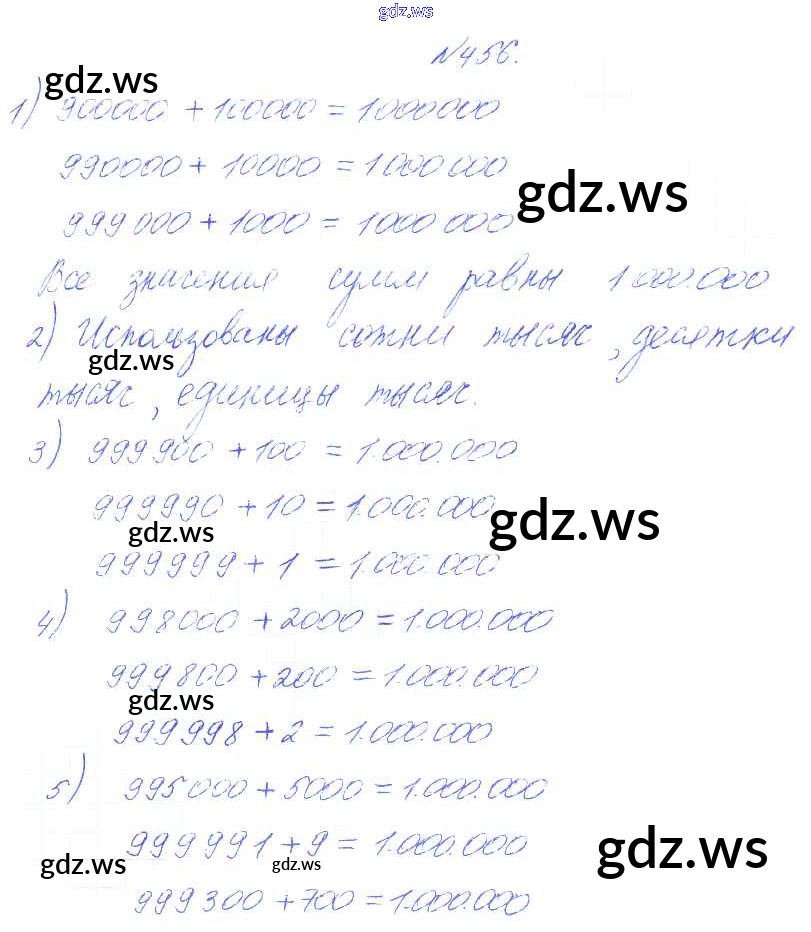 gdz.ws
№456.
gdz.ws
1) 900000 + 100000 = 1000000
990000 + 10000 = 1000 000
gdz.ws
999 000 + 1000 = 1000 000
Все значения сумм равны 1 000.000
2) Использованы сотни тысяч, десятки
gdz.ws
тысяч, единицы тысяч.
3) 999 900 + 100 = 1.000.000
999990 + 10 = 1.000.000
gdz.ws gdz.ws
999999 + 1 = 1.000.000
4) 998000 + 2000 = 1.000.000
999800 + 200 = 1.000.000
gdz.ws
999998 + 2 = 1.000.000
5) 995000 + 5000 = 1.000.000
999991 + 9 = 1.000.000
gdz.ws gdz.ws gdz.ws
999300 + 700 = 1.000.000